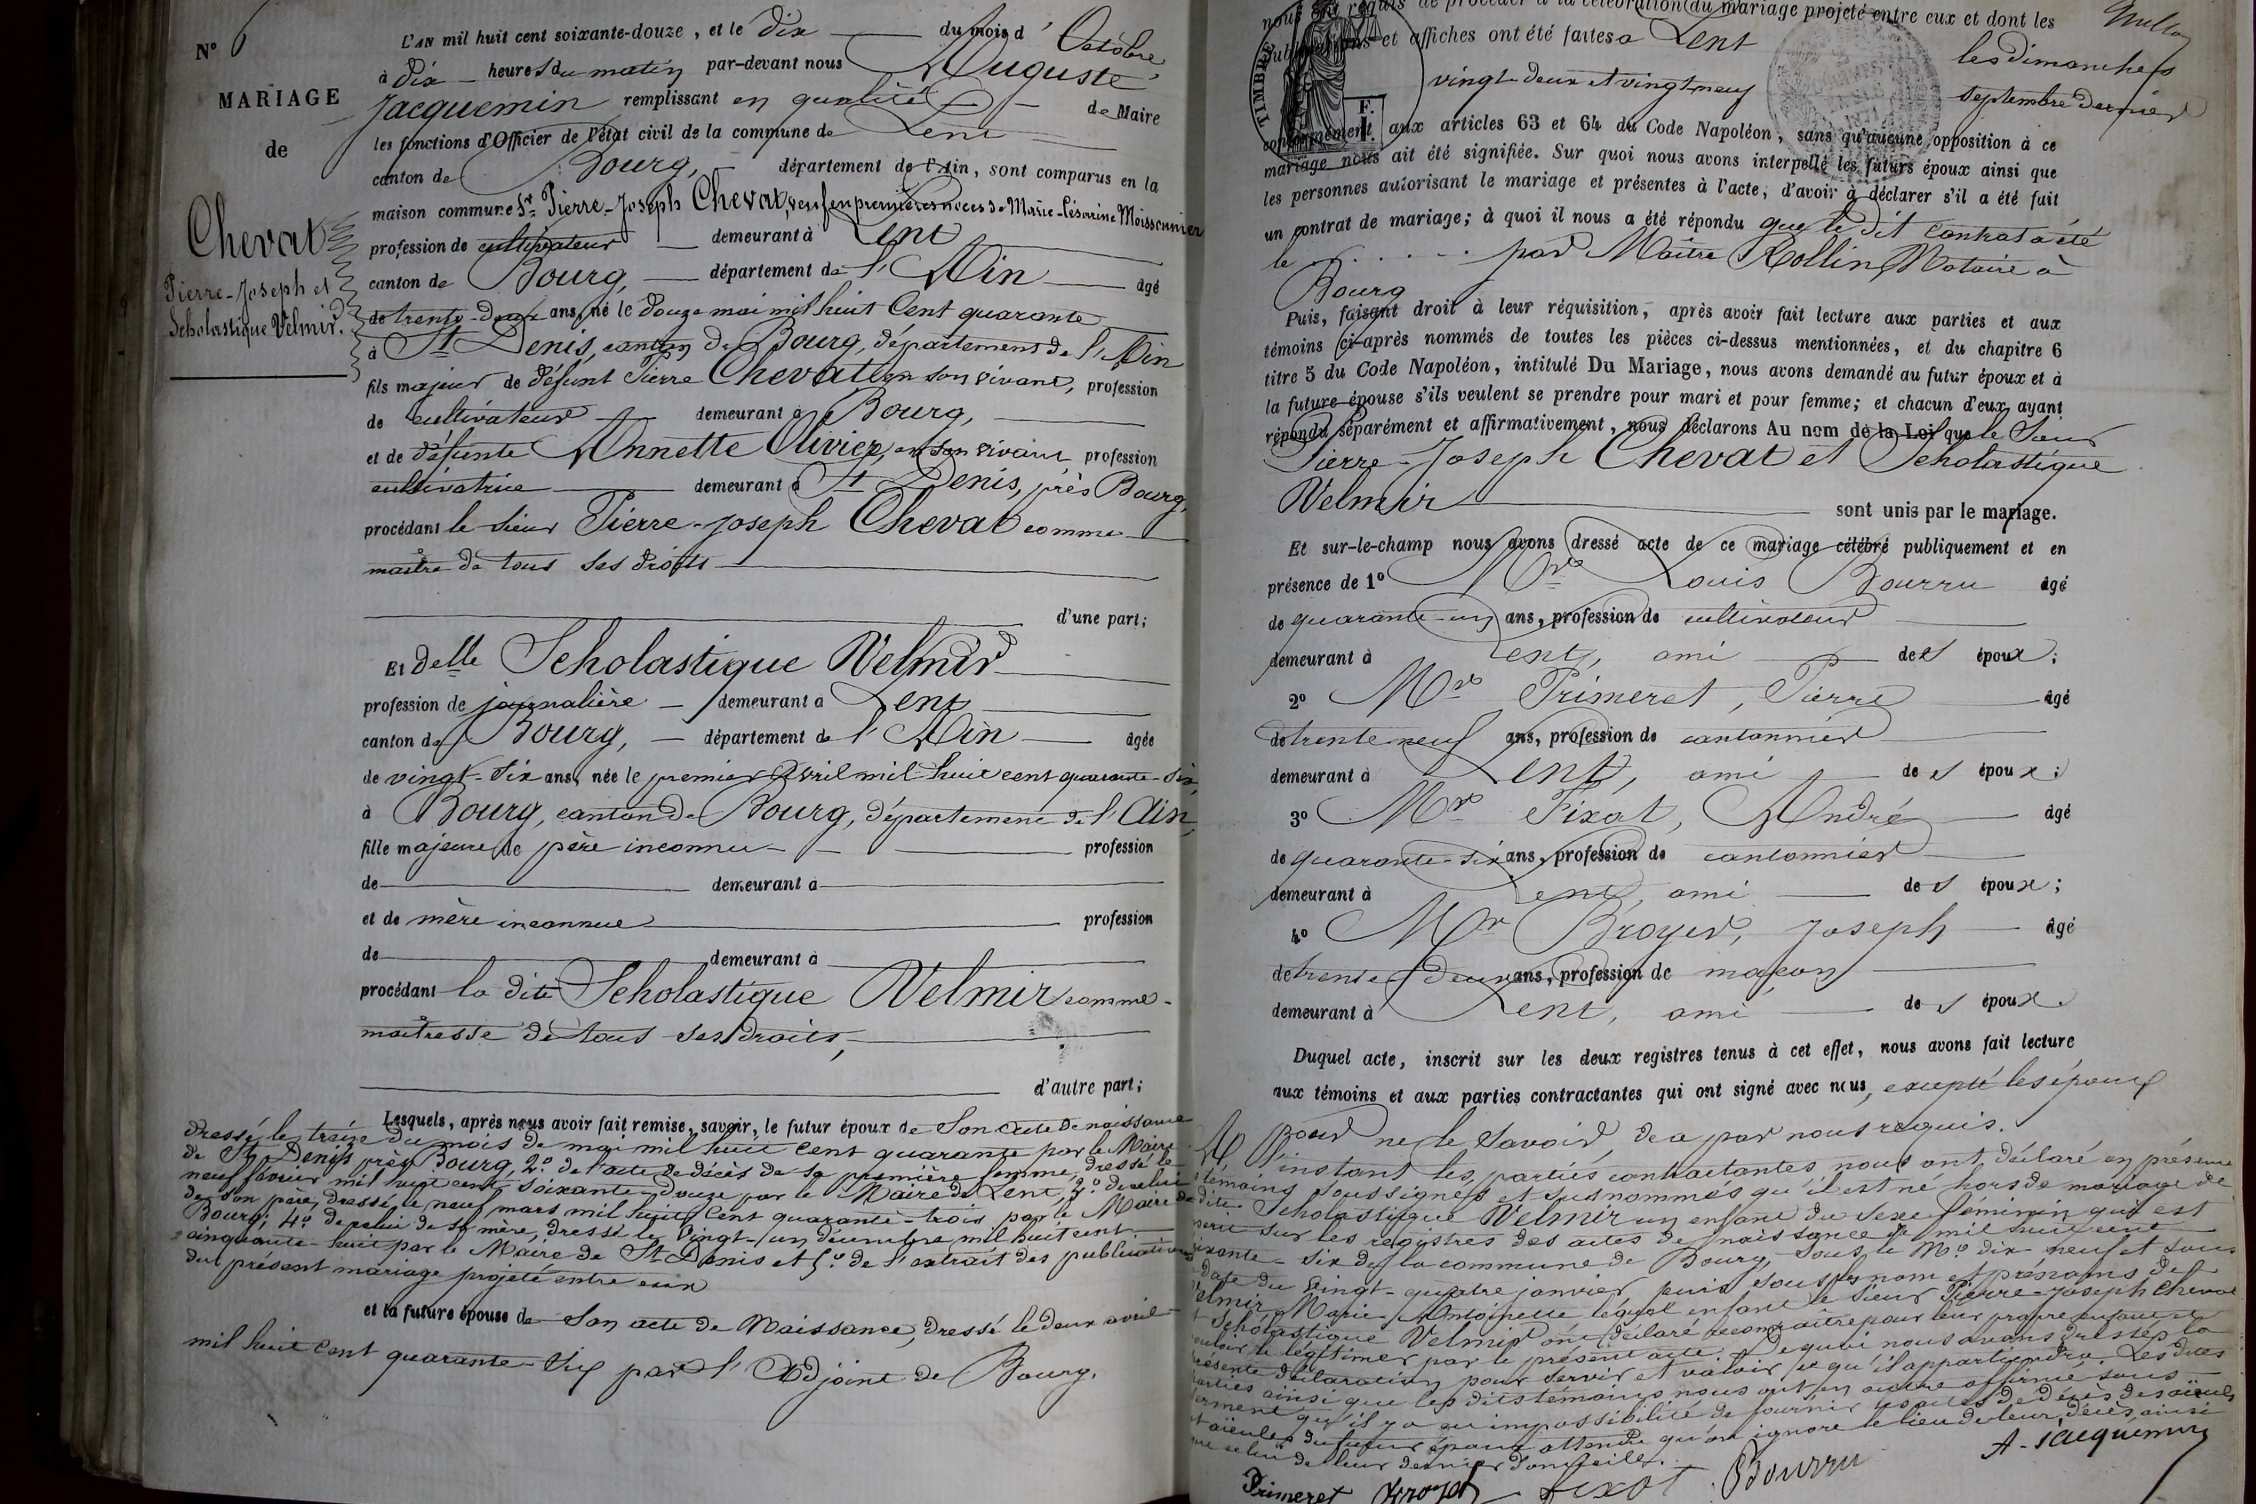 N° 6
MARIAGE
de
Chevat
Pierre-Joseph et
Scholastique Velmir.
L'AN mil huit cent soixante-douze, et le dix du mois d'Octobre,
à dix heures du matin par-devant nous Auguste
Jacquemin remplissant en qualité de Maire
les fonctions d'Officier de l'état civil de la commune de Lent
canton de Bourg, département de l'Ain, sont comparus en la
maison commune Sr. Pierre-Joseph Chevat, veuf en premières noces de Marie-Césarine Moissonnier
profession de cultivateur demeurant à Lent
canton de Bourg, département de l'Ain âgé
de trente-deux ans, né le douze mai mil huit cent quarante
à St Denis, canton de Bourg, département de l'Ain
fils majeur de défunt Pierre Chevat en son vivant, profession
de cultivateur demeurant à Bourg,
et de défunte Annette Olivier, en son vivant profession
cultivatrice demeurant à St Denis, près Bourg,
procédant le sieur Pierre-Joseph Chevat comme
maître de tous ses droits
d'une part;
Et delle Scholastique Velmir
profession de journalière demeurant à Lent
canton de Bourg, département de l'Ain âgée
de vingt-six ans, née le premier Avril mil huit cent quarante-six,
à Bourg, canton de Bourg, département de l'Ain,
fille majeure de père inconnu profession
de demeurant à
et de mère inconnue profession
de demeurant à
procédant la dite Scholastique Velmir comme
maîtresse de tous ses droits,
d'autre part;
Lesquels, après nous avoir fait remise, savoir, le futur époux de son acte de naissance
dressé le treize du mois de mai mil huit cent quarante par le Maire
de St Denis près Bourg, 2° de l'acte de décès de sa première femme, dressé le
neuf février mil huit cent soixante-douze par le Maire de Lent, 3° de celui
de son père, dressé le neuf mars mil huit cent quarante-trois par le Maire de
Bourg; 4° de celui de sa mère, dressé le vingt-un décembre mil huit cent
cinquante-huit par le Maire de St Denis et 5° de l'extrait des publications
du présent mariage projeté entre eux
et la future épouse de son acte de Naissance, dressé le deux avril
mil huit cent quarante-six par l'Adjoint de Bourg.
nous ont requis de procéder à la célébration du mariage projeté entre eux et dont les
publications et affiches ont été faites à Lent les dimanches
vingt-deux et vingt-neuf septembre dernier
TIMBRE
conformément aux articles 63 et 64 du Code Napoléon, sans qu'aucune opposition à ce
mariage nous ait été signifiée. Sur quoi nous avons interpellé les futurs époux ainsi que
les personnes autorisant le mariage et présentes à l'acte, d'avoir à déclarer s'il a été fait
un contrat de mariage; à quoi il nous a été répondu que le dit contrat a été
le ...... par Maître Rollin, Notaire à
Bourg
Puis, faisant droit à leur réquisition, après avoir fait lecture aux parties et aux
témoins ci-après nommés de toutes les pièces ci-dessus mentionnées, et du chapitre 6
titre 5 du Code Napoléon, intitulé Du Mariage, nous avons demandé au futur époux et à
la future épouse s'ils veulent se prendre pour mari et pour femme; et chacun d'eux ayant
répondu séparément et affirmativement, nous déclarons Au nom de la Loi que le Sieur
Pierre-Joseph Chevat et Scholastique
Velmir sont unis par le mariage.
Et sur-le-champ nous avons dressé acte de ce mariage célébré publiquement et en
présence de 1° Mr Louis Bourru âgé
de quarante-un ans, profession de cultivateur
demeurant à Lent, ami des époux;
2° Mr Primeret, Pierre âgé
de trente neuf ans, profession de cantonnier
demeurant à Lent, ami des époux;
3° Mr Fixot, André âgé
de quarante-six ans, profession de cantonnier
demeurant à Lent, ami des époux;
4° Mr Broyer, Joseph âgé
de trente deux ans, profession de maçon
demeurant à Lent, ami des époux.
Duquel acte, inscrit sur les deux registres tenus à cet effet, nous avons fait lecture
aux témoins et aux parties contractantes qui ont signé avec nous, excepté les époux
pour ne le savoir, de ce par nous requis.
A l'instant les parties contractantes nous ont déclaré en présence
témoins soussignés et susnommés qu'il est né hors de mariage de
dite Scholastique Velmir un enfant du sexe féminin qui est
sur les registres des actes de naissance de mil huit cent
soixante-six de la commune de Bourg, sous le N° dix-neuf et sous
date du vingt-quatre janvier puis sous les nom et prénoms de
Velmir Marie Antoinette lequel enfant le sieur Pierre-Joseph Chevat
et Scholastique Velmir ont déclaré reconnaître pour leur propre enfant et
vouloir le légitimer par le présent acte. De quoi nous avons dressé la
présente déclaration pour servir et valoir ce qu'il appartiendra. Les dites
parties ainsi que les dits témoins nous ont en outre affirmé sous
serment qu'il y a eu impossibilité de fournir les actes de décès des aïeuls
et aïeules du futur époux attendu qu'on ignore le lieu de leur décès, ainsi
que celui de leur dernier domicile.
A. Jacquemin
Primeret Broyer Fixot Bourru